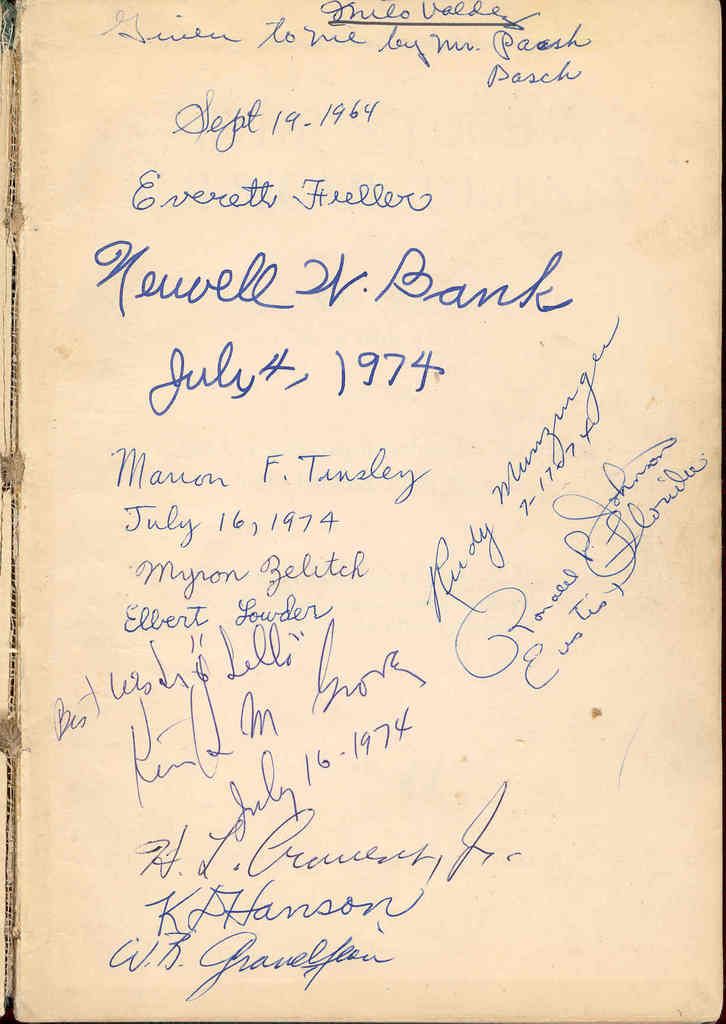 Milo Valdez
Given to me by Mr. Paash
Pasch
Sept 19-1964
Everett Fuller
Newell W. Bank
July 4, 1974
Marion F. Tinsley
July 16, 1974
Myron Zelitch
Elbert Lowder
Best Wishes "Lello"
M Grover
July 16-1974
Rudy Munzinger
7-17-74
Ronald P. Johnson
Eustis, Florida
H. L. Jr.
K D Hanson
W. B.